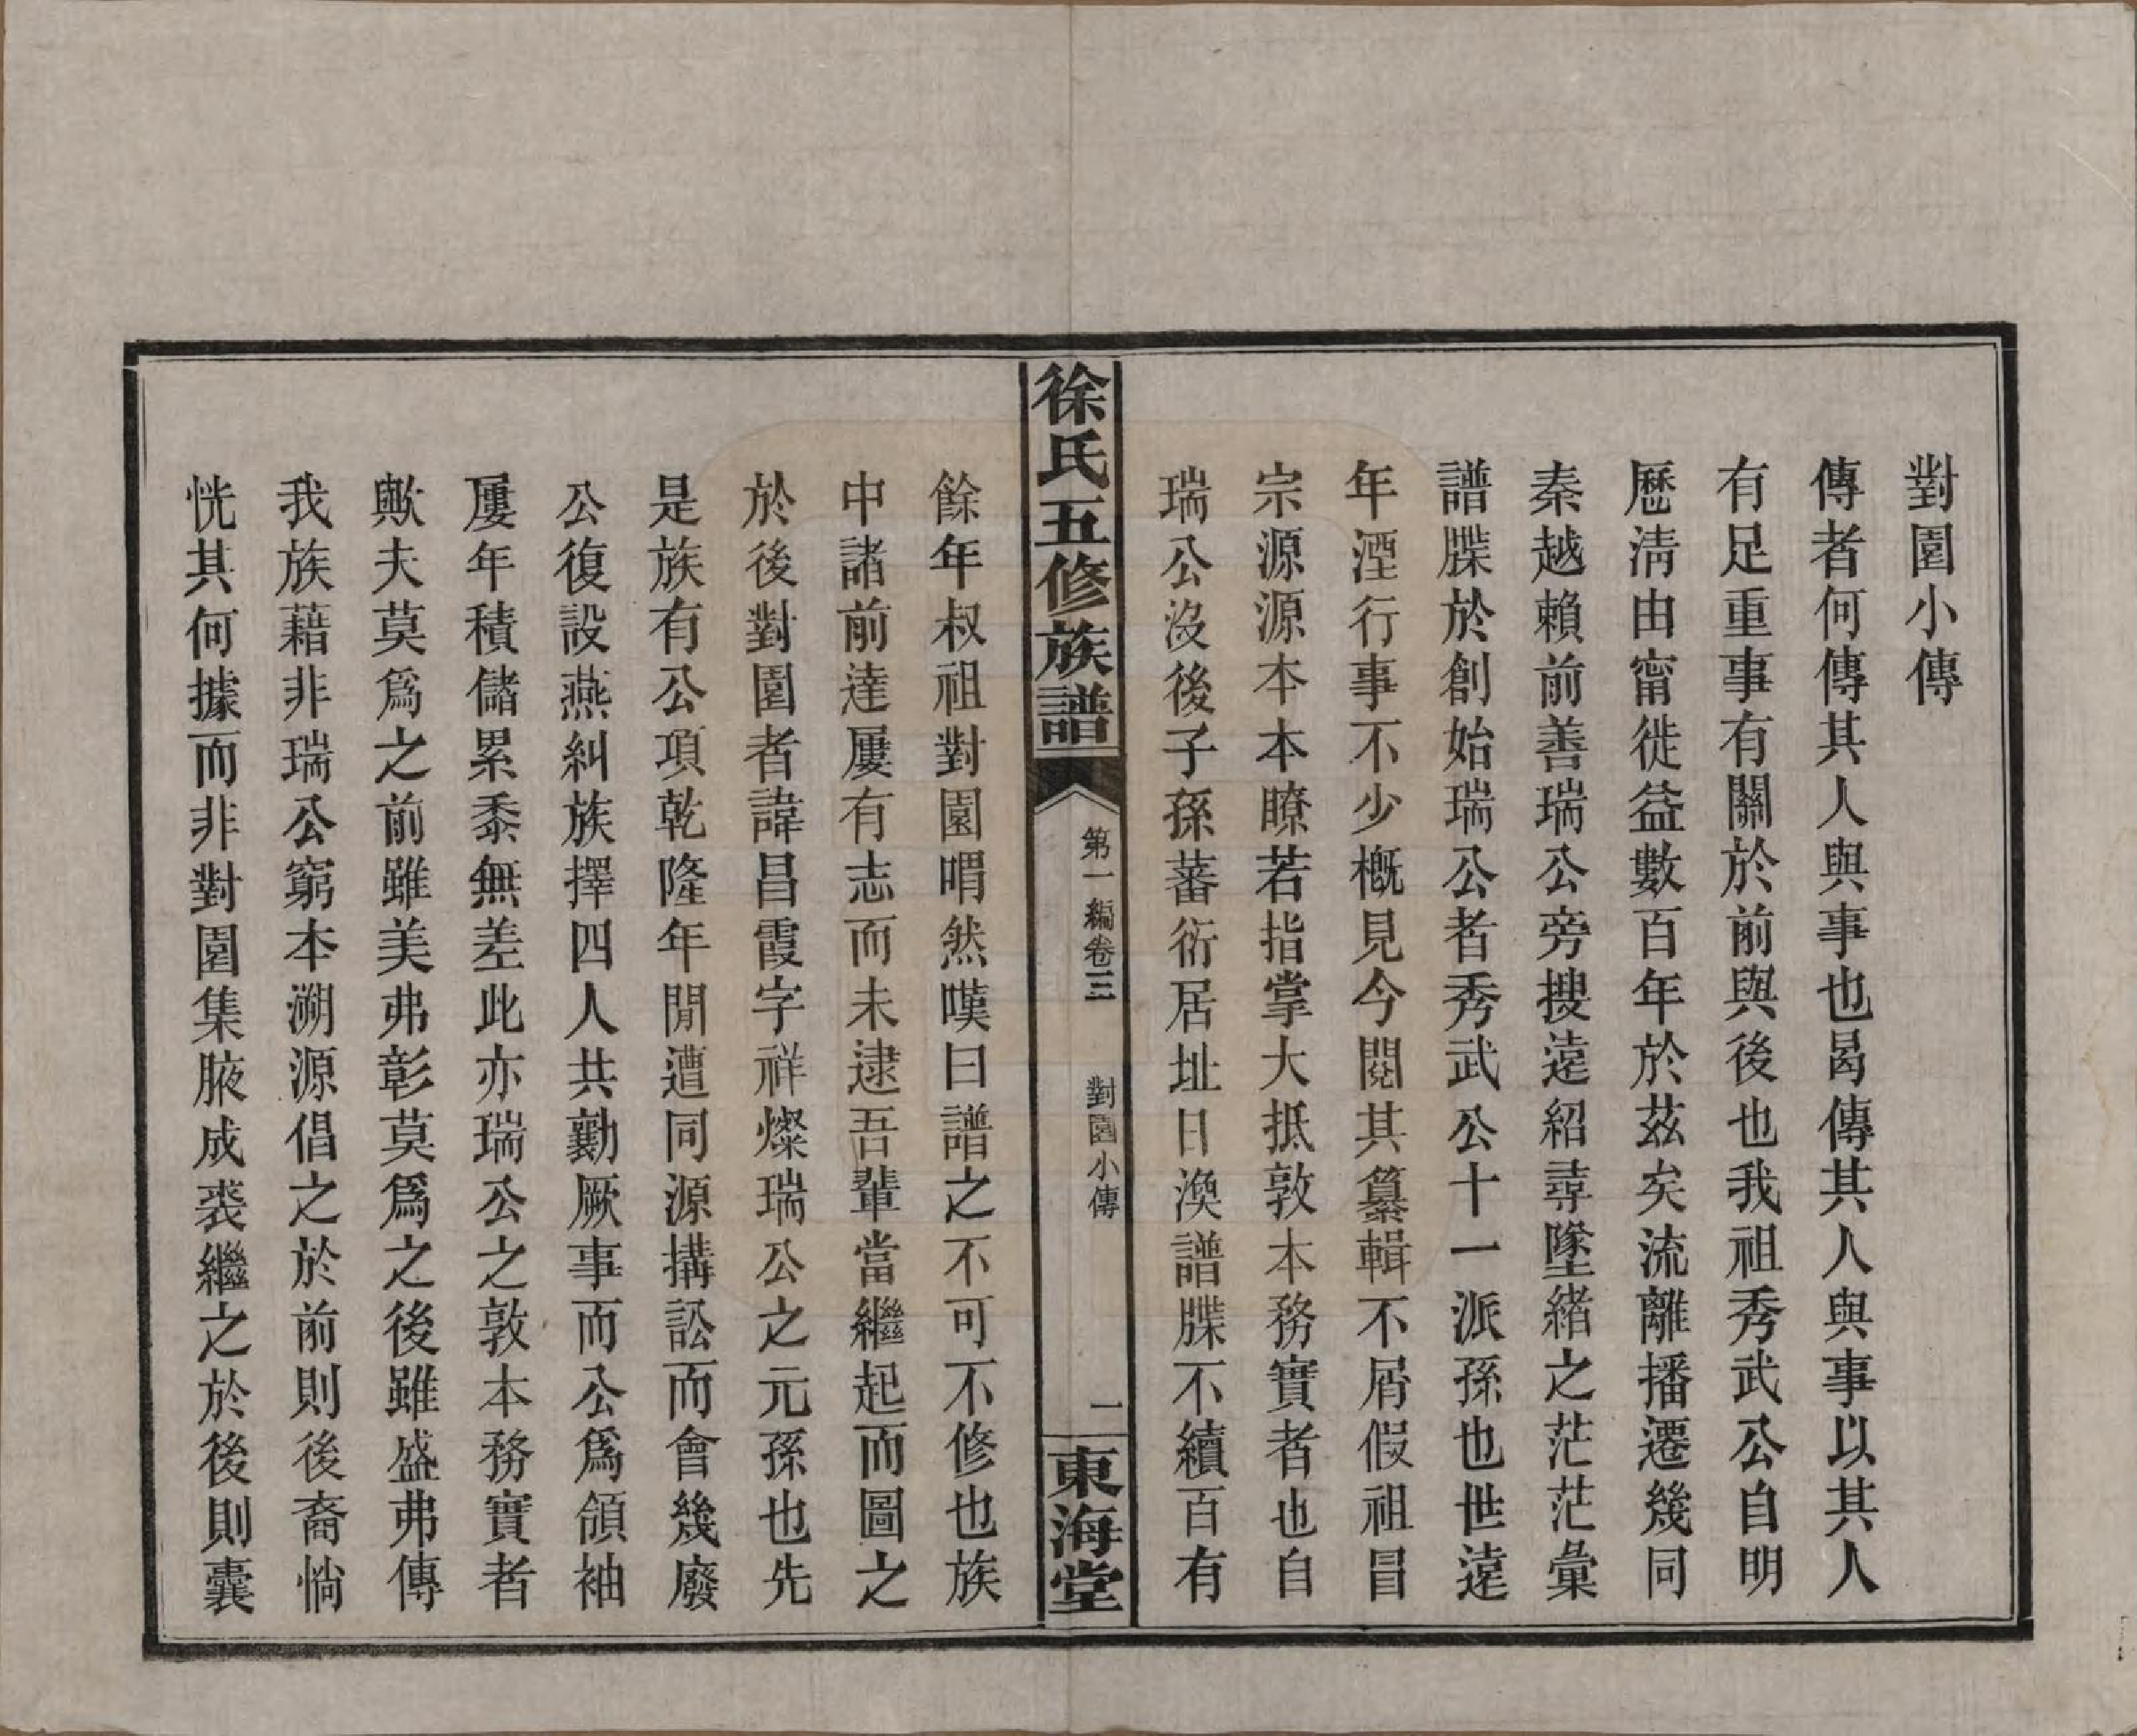 對園小傳
傳者何傳其人與事也曷傳其人與事以其人
有足重事有關於前與後也我祖秀武公自明
歷淸由甯徙益數百年於茲矣流離播遷幾同
秦越賴前善瑞公旁搜遠紹尋墜緒之茫茫彙
譜牒於創始瑞公者秀武公十一派孫也世遠
年湮行事不少槪見今閱其纂輯不屑假祖冒
宗源源本本瞭若指掌大抵敦本務實者也自
瑞公沒後子孫蕃衍居址日渙譜牒不續百有
徐氏五修族譜
第一編卷三
對園小傳
一
東海堂
餘年叔祖對園喟然嘆曰譜之不可不修也族
中諸前達屢有志而未逮吾輩當繼起而圖之
於後對園者諱昌霞字祥燦瑞公之元孫也先
是族有公項乾隆年間遭同源搆訟而會幾廢
公復設燕糾族擇四人共勷厥事而公爲領袖
屢年積儲累黍無差此亦瑞公之敦本務實者
歟夫莫爲之前雖美弗彰莫爲之後雖盛弗傳
我族藉非瑞公窮本溯源倡之於前則後裔惝
恍其何據而非對園集腋成裘繼之於後則囊